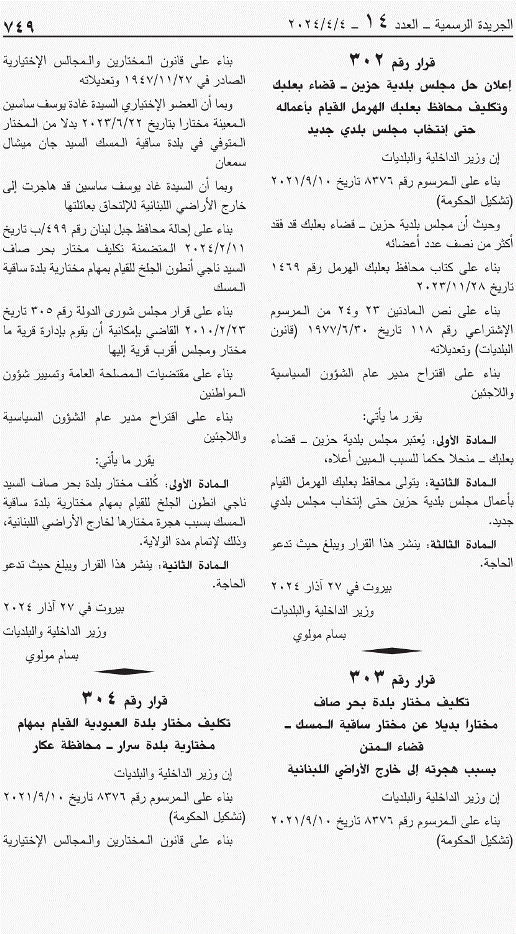 الجريدة الرسمية ـ العدد ١٤ ـ ٢٠٢٤/٤/٤
٧٤٩
قرار رقم ٣٠٢
إعلان حل مجلس بلدية حزين ـ قضاء بعلبك
وتكليف محافظ بعلبك الهرمل القيام بأعماله
حتى إنتخاب مجلس بلدي جديد
إن وزير الداخلية والبلديات
بناء على المرسوم رقم ٨٣٧٦ تاريخ ٢٠٢١/٩/١٠
(تشكيل الحكومة)
وحيث أن مجلس بلدية حزين ـ قضاء بعلبك قد فقد
أكثر من نصف عدد أعضائه
بناء على كتاب محافظ بعلبك الهرمل رقم ١٤٦٩
تاريخ ٢٠٢٣/١١/٢٨
بناء على نص المادتين ٢٣ و٢٤ من المرسوم
الإشتراعي رقم ١١٨ تاريخ ١٩٧٧/٦/٣٠ (قانون
البلديات) وتعديلاته
بناء على اقتراح مدير عام الشؤون السياسية
واللاجئين
يقرر ما يأتي:
المادة الأولى: يُعتبر مجلس بلدية حزين ـ قضاء
بعلبك ـ منحلا حكما للسبب المبين أعلاه،
المادة الثانية: يتولى محافظ بعلبك الهرمل القيام
بأعمال مجلس بلدية حزين حتى إنتخاب مجلس بلدي
جديد.
المادة الثالثة: ينشر هذا القرار ويبلغ حيث تدعو
الحاجة.
بيروت في ٢٧ آذار ٢٠٢٤
وزير الداخلية والبلديات
بسام مولوي
قرار رقم ٣٠٣
تكليف مختار بلدة بحر صاف
مختارا بديلا عن مختار ساقية المسك ـ
قضاء المتن
بسبب هجرته إلى خارج الأراضي اللبنانية
إن وزير الداخلية والبلديات
بناء على المرسوم رقم ٨٣٧٦ تاريخ ٢٠٢١/٩/١٠
(تشكيل الحكومة)
بناء على قانون المختارين والمجالس الإختيارية
الصادر في ١٩٤٧/١١/٢٧ وتعديلاته
وبما أن العضو الإختياري السيدة غادة يوسف ساسين
المعينة مختارا بتاريخ ٢٠٢٣/٦/٢٢ بدلا من المختار
المتوفي في بلدة ساقية المسك السيد جان ميشال
سمعان
وبما أن السيدة غاد يوسف ساسين قد هاجرت إلى
خارج الأراضي اللبنانية للإلتحاق بعائلتها
بناء على إحالة محافظ جبل لبنان رقم ٤٩٩/ب تاريخ
٢٠٢٤/٢/١١ المتضمنة تكليف مختار بحر صاف
السيد ناجي أنطون الجلخ للقيام بمهام مختارية بلدة ساقية
المسك
بناء على قرار مجلس شورى الدولة رقم ٣٠٥ تاريخ
٢٠١٠/٢/٢٣ القاضي بإمكانية أن يقوم بإدارة قرية ما
مختار ومجلس أقرب قرية إليها
بناء على مقتضيات المصلحة العامة وتسيير شؤون
المواطنين
بناء على اقتراح مدير عام الشؤون السياسية
واللاجئين
يقرر ما يأتي:
المادة الأولى: كُلف مختار بلدة بحر صاف السيد
ناجي انطون الجلخ للقيام بمهام مختارية بلدة ساقية
المسك بسبب هجرة مختارها لخارج الأراضي اللبنانية،
وذلك لإتمام مدة الولاية.
المادة الثانية: ينشر هذا القرار ويبلغ حيث تدعو
الحاجة.
بيروت في ٢٧ آذار ٢٠٢٤
وزير الداخلية والبلديات
بسام مولوي
قرار رقم ٣٠٤
تكليف مختار بلدة العبودية القيام بمهام
مختارية بلدة سرار ـ محافظة عكار
إن وزير الداخلية والبلديات
بناء على المرسوم رقم ٨٣٧٦ تاريخ ٢٠٢١/٩/١٠
(تشكيل الحكومة)
بناء على قانون المختارين والمجالس الإختيارية